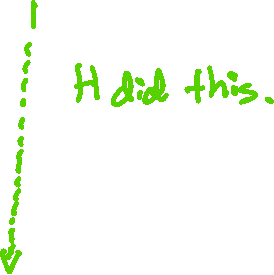 H did this.